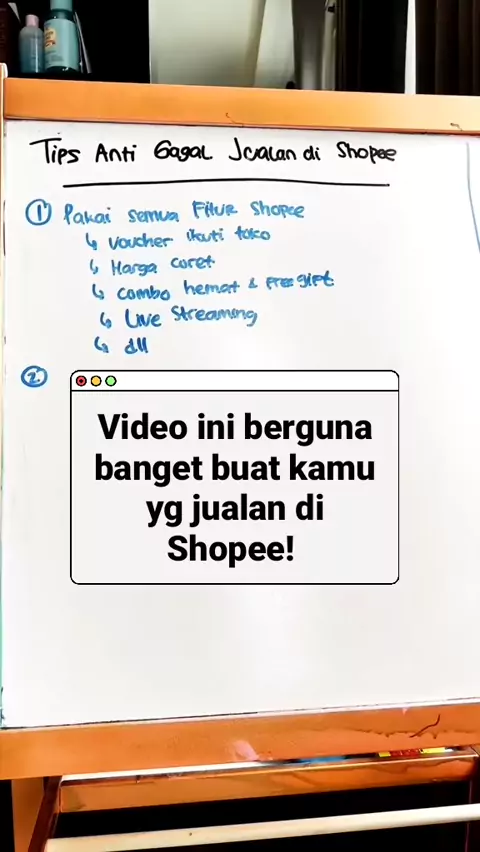 Tips Anti Gagal Jualan di Shopee
1 Pakai semua Fitur Shopee
↳ Voucher ikuti toko
↳ Harga coret
↳ combo hemat & free gift
↳ Live Streaming
↳ dll
2
Video ini berguna
banget buat kamu
yg jualan di
Shopee!